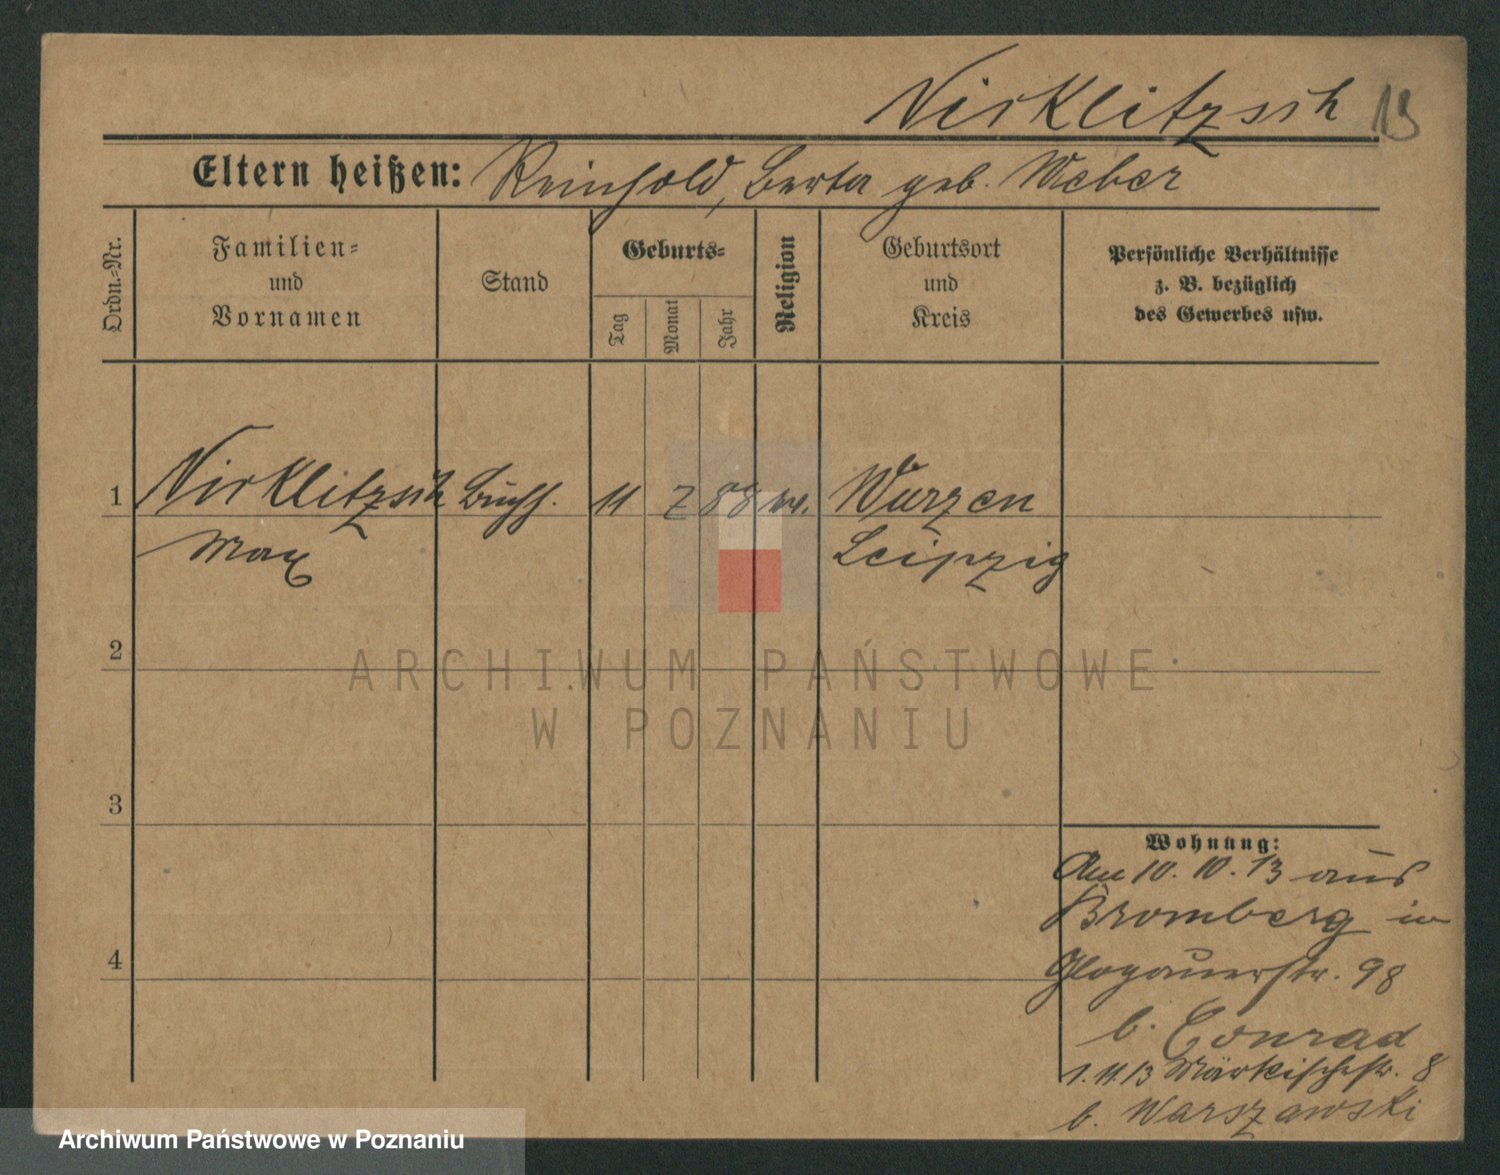 Nirklitzsch 13
Eltern heißen: Reinhold, Berta geb. Weber
Ordn.-Nr.
Familien-
und
Vornamen
Stand
Geburts-
Tag
Monat
Jahr
Religion
Geburtsort
und
Kreis
Persönliche Verhältnisse
z. B. bezüglich
des Gewerbes usw.
1 Nirklitzsch Buchh. 11 7 88 ev. Wurzen
Max Leipzig
2
ARCHIWUM PAŃSTWOWE
W POZNANIU
3
Wohnung:
Am 10.10.13 aus
Bromberg in
4
Glogauerstr. 98
b. Conrad
1.11.13 Märkischestr. 8
b. Warszawski
Archiwum Państwowe w Poznaniu